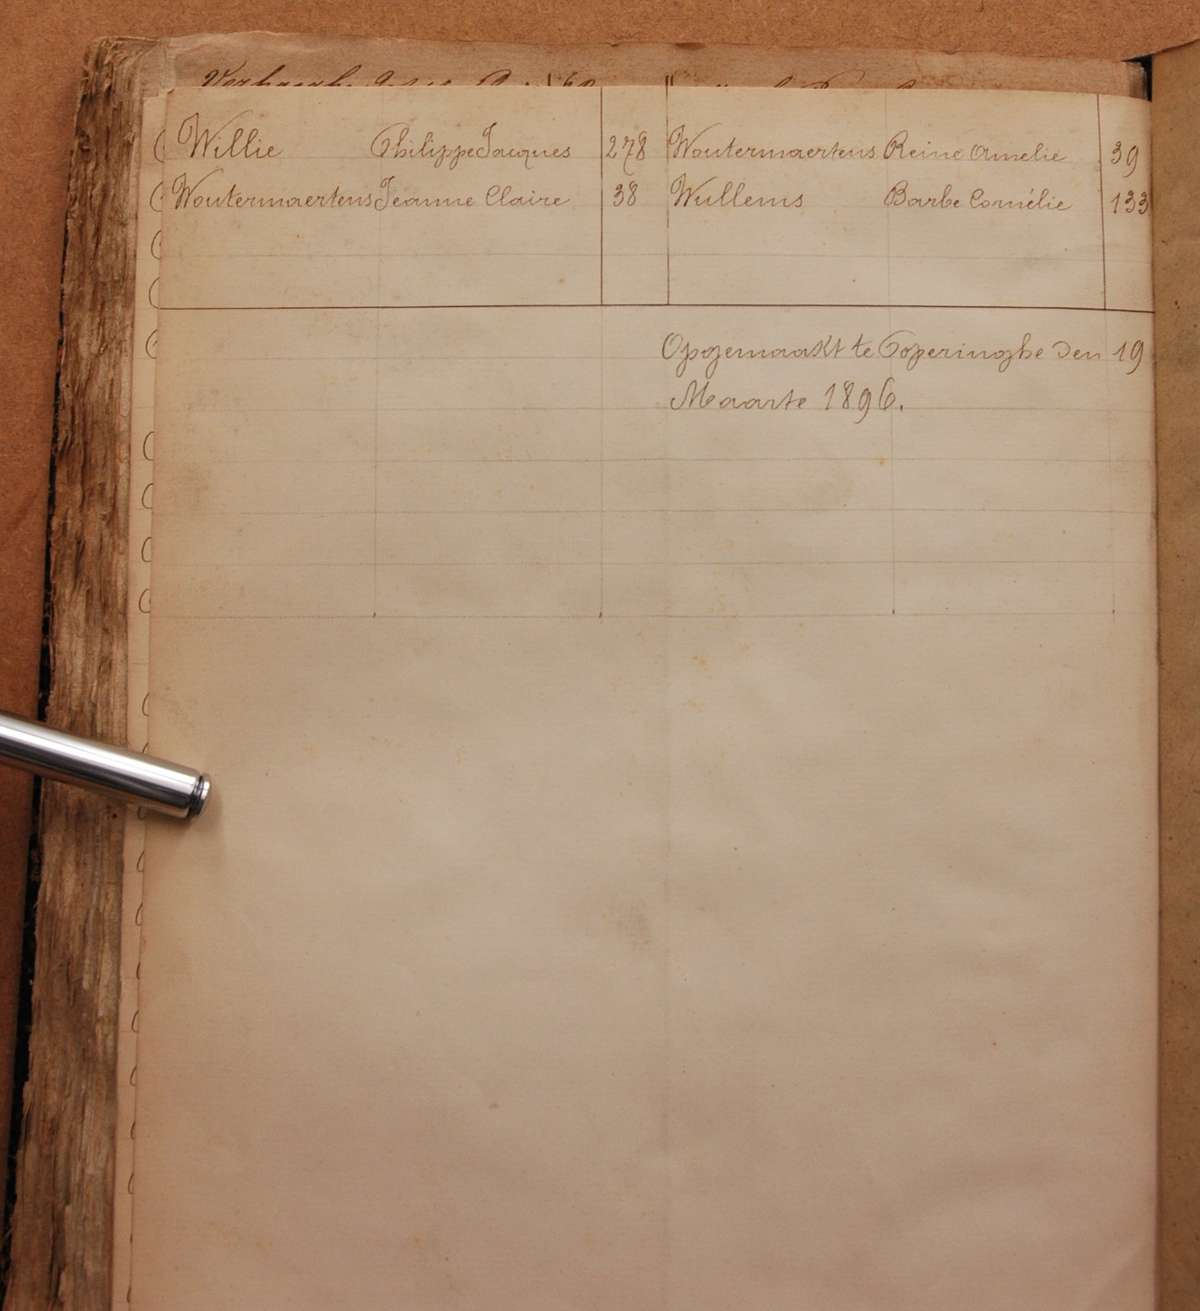 Willie Philippe Jacques 278 Woutermaertens Reine Amelie 39
Woutermaertens Jeanne Claire 38 Wullems Barbe Cornélie 133
Opgemaakt te Poperinghe den 19
Maarte 1896.